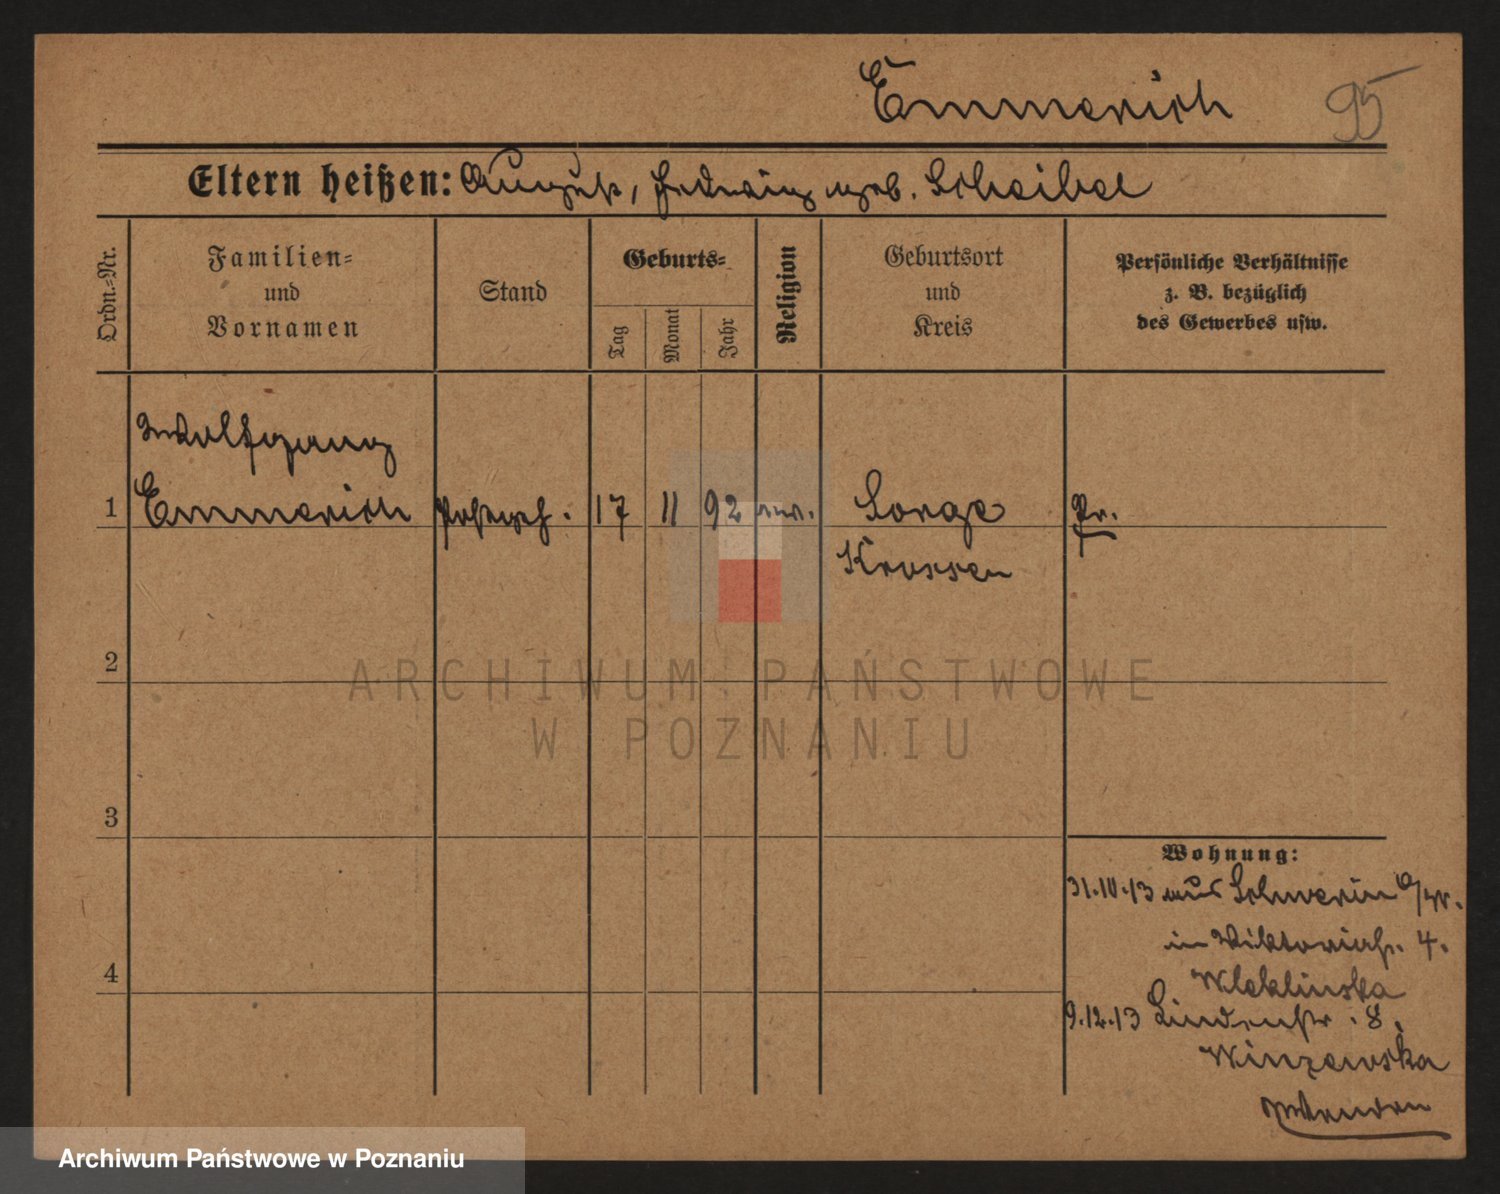 Emmerich 95
Eltern heißen: August, Hedwig geb. Scheibel
Ordn.=Nr.
Familien=
und
Vornamen
Stand
Geburts=
Tag
Monat
Jahr
Religion
Geburtsort
und
Kreis
Persönliche Verhältnisse
z. B. bezüglich
des Gewerbes usw.
Wolfgang
1 Emmerich Postgeh. 17 11 92 ev. Sorge Pr.
Krossen
2
3
4
Wohnung:
31.10.13 aus Schwerin a/W.
in Viktoriastr. 4.
Wleklinska
9.12.13 Lindenstr. 8.
Winzewska
ARCHIWUM PAŃSTWOWE
W POZNANIU
Archiwum Państwowe w Poznaniu